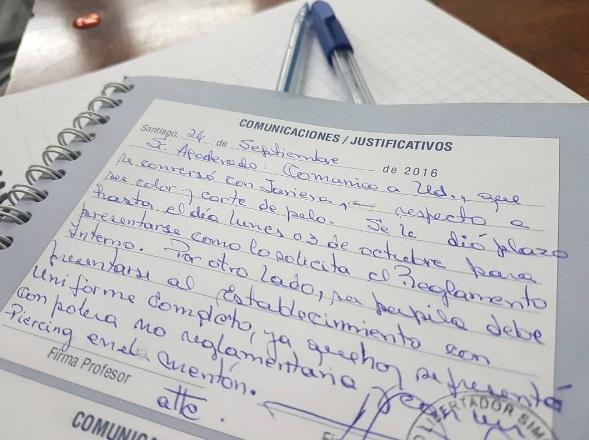 COMUNICACIONES / JUSTIFICATIVOS
Santiago, 24 de Septiembre de 2016
Sr. Apoderado: Comunico a Ud., que
se conversó con Javiera, respecto a
su color y corte de pelo. Se le dió plazo
hasta el día lunes 03 de octubre para
presentarse como lo solicita el Reglamento
Interno. Por otro lado, su pupila debe
presentarse al Establecimiento con
uniforme completo, ya que hoy se presentó
con polera no reglamentaria
Piercing en el mentón.
Firma Profesor
atte.
LIBERTADOR SIM
COMUNIC